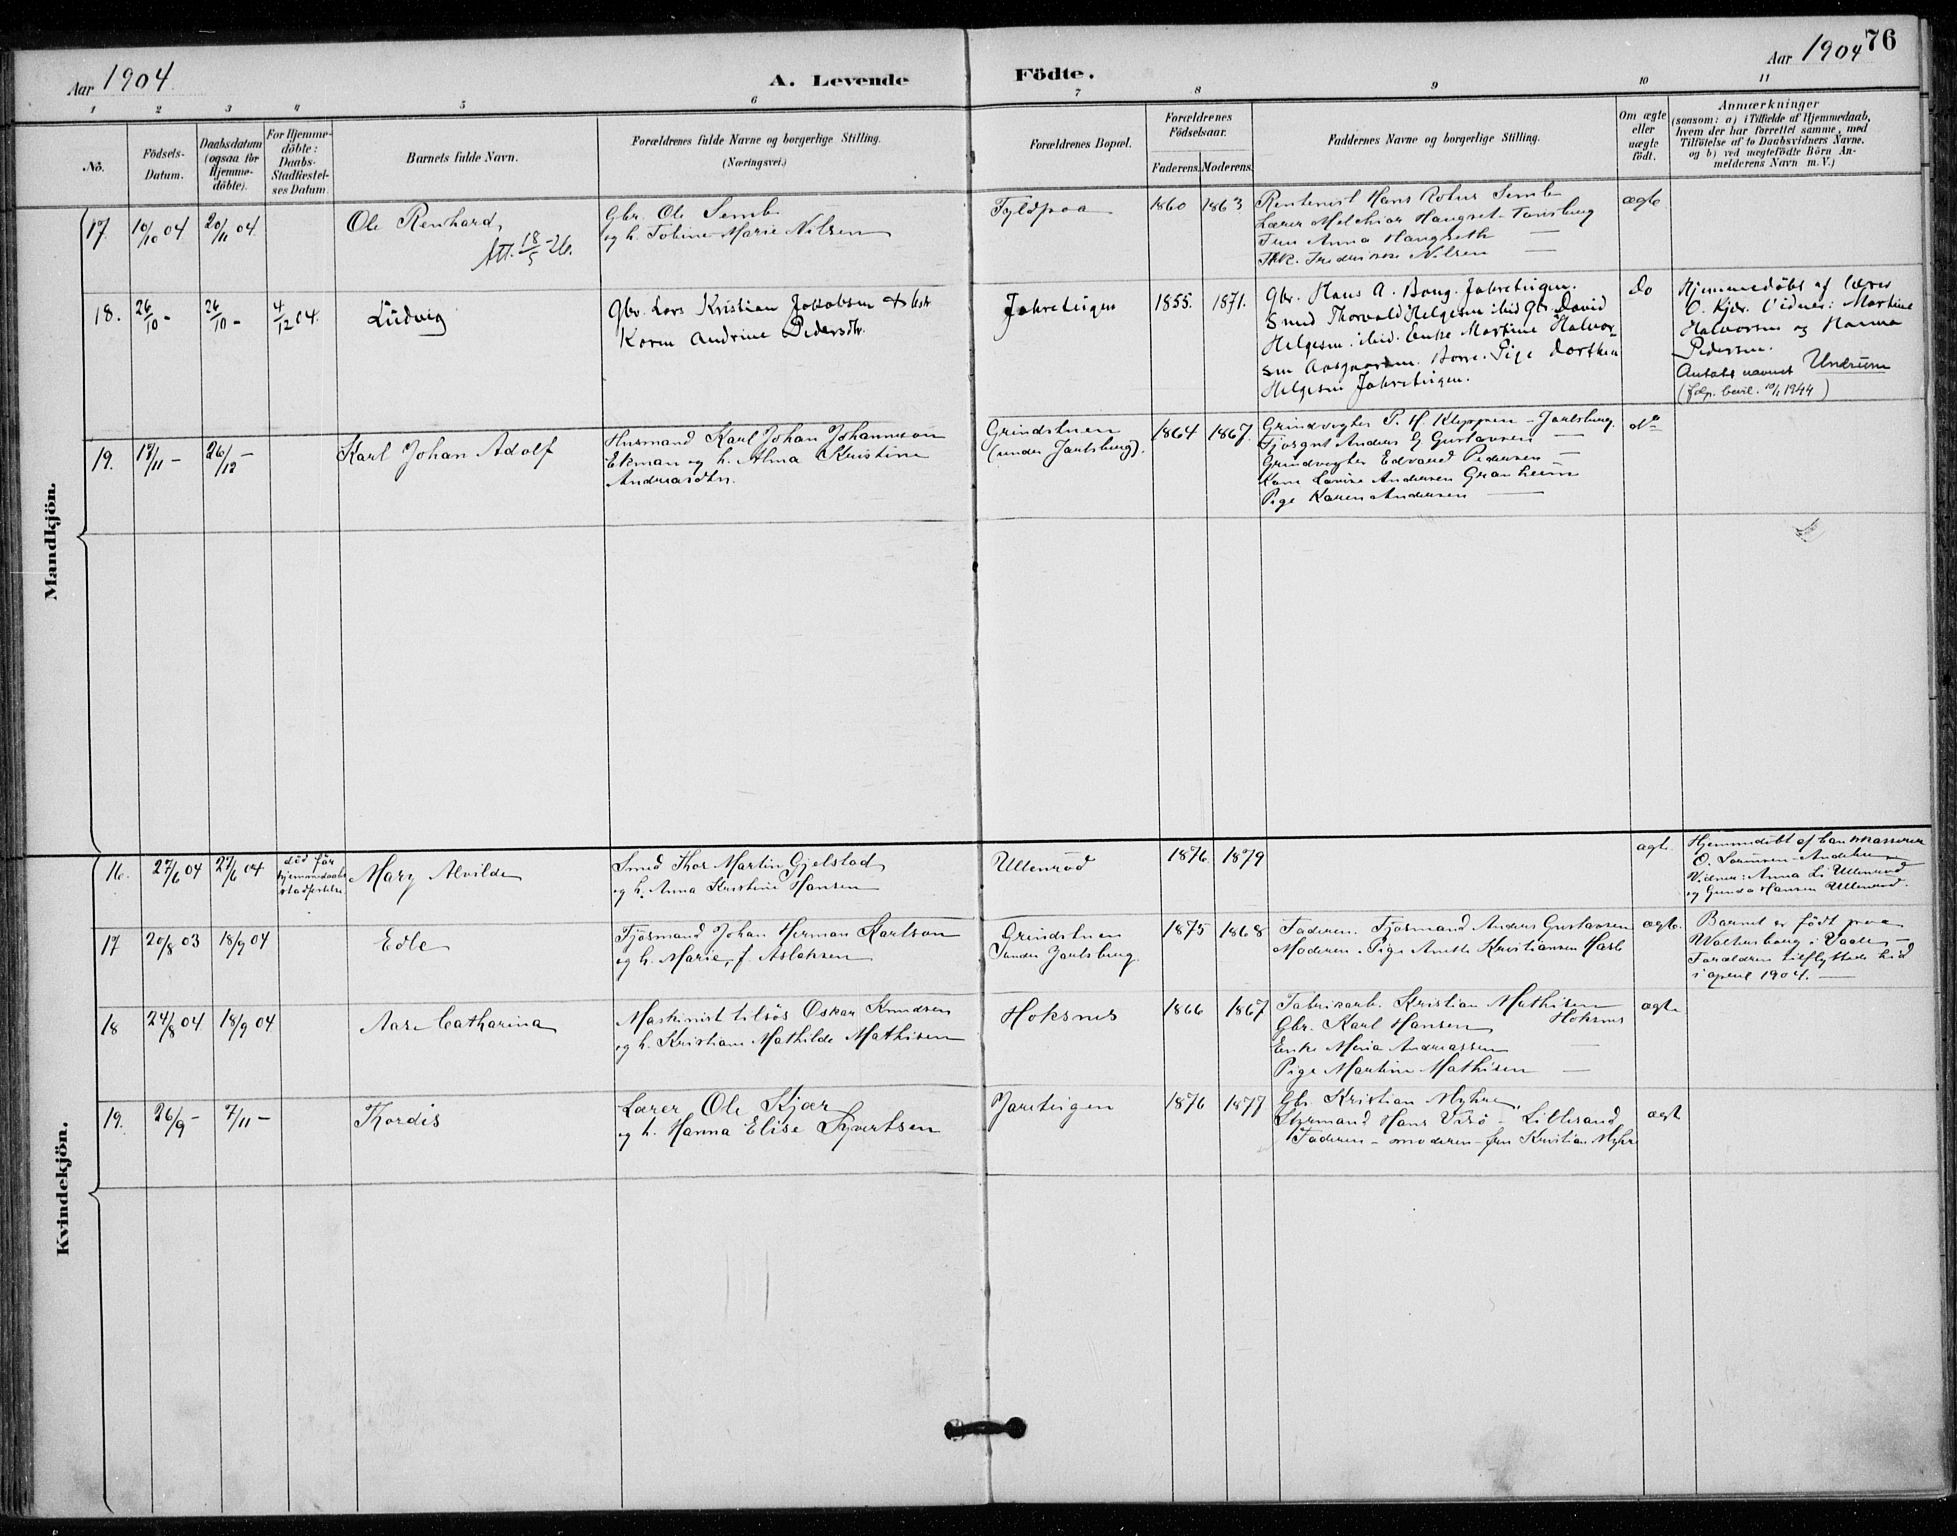 76
Aar 1904
A. Levende Födte.
Aar 1904
1 2 3 4 5 6 7 8 9 10 11
No.
Födsels-
Datum.
Daabsdatum
(ogsaa for
Hjemme-
döbte).
For Hjemme-
döbte:
Daabs-
Stadfæstel-
ses Datum.
Barnets fulde Navn.
Forældrenes fulde Navne og borgerlige Stilling.
(Næringsvei.)
Forældrenes Bopæl.
Forældrenes
Födselsaar.
Faderens. Moderens.
Faddernes Navne og borgerlige Stilling.
Om ægte
eller
uægte
födt.
Anmærkninger
(saasom: a) i Tilfælde af Hjemmedaab,
hvem der har forrettet samme, med
Tilföielse af to Daabsvidners Navne.
og b) ved uægtefödte Börn An-
melderens Navn m. V.)
Mandkjön.
17. 10/10 04 20/11 04
Ole Renhard,
Att. 18/5-26.
Gbr. Ole Semb
og h. Tobine Marie Nilsen
1860 1863
Hans Semb
Lærer Melchior Haugset Tønsberg
Fru Anna Haugseth —
Nilsen —
ægte
18. 26/10 - 26/10 - 4/12 04.
Ludvig
Gbr. Lars Kristian Jakobsen & hst
Karen Andrine Pedersdtr.
Jahreteigen
1855. 1871.
Gbr. Hans A. Bong. Jahreteigen.
Smed Thorvald Helgesen ibid Gbr. David
Helgesen. ibid. Enke Martine Halvor-
sen Aasgaarden. Borre. Pige Dorthea
Helgesen Jahreteigen.
do
Hjemmedøbt af lærer
O. Kjær. Vidner: Martine
Halvorsen og Hanna
Pedersen.
Antatt navnet Undrum
(flg. bevil. 10/1 1944)
19. 17/11 - 26/12 -
Karl Johan Adolf
Husmand Karl Johan Johanneson
Ekman og h. Alma Kristine
Andreasdtr.
Grindstuen
(under Jarlsberg).
1864 1867.
Grindvogter P. H. Kleppen - Jarlsberg.
Anders G Gustavsen —
Grindvogter Edvard Pedersen —
Kone Lovise Andersen Granheim
Pige Karen Andersen —
do
Kvindekjön.
16. 27/6 04 27/6 04
död før
hjemmedaabs
stadfestelse
Mary Alvilde
Smed Thor Martin Gjelstad
og h. Anna Kristine Hansen
Ullenrød
1876. 1879
ægte.
Hjemmedøbt af
O. Sørensen
Vidner: Anna L. Ullenrød
og Gunda Hansen Ullenrød.
17 20/8 03 18/9 04
Edle
Fjösmand Johan Herman Karlson
og h. Marie, f. Aslaksen
Grindstuen
under Jarlsberg.
1875 1868
Faderen. Fjösmand Anders Gustavsen
Moderen. Pige Anette Kristiansen
ægte.
Barnet er født paa
i Vaale —
Forældrene tilflyttede hid
i april 1904. —
18 24/8 04 18/9 04
Catharina
Maskinist tilsjøs Oskar Knudsen
og h. Kristiane Mathilde Mathisen
Hoksnes
1866 1867
Fabrikarb. Kristian Mathisen
Hoksnes
Gbr. Karl Hansen
Enke Maria Andreassen —
Pige Martine Mathisen —
ægte
19. 26/9 - 7/11 -
Thordis
Lærer Ole Kjær
og h. Hanna Elise Syvertsen
Jareteigen
1876 1877
Gbr. Kristian Myhre.
Styrmand Hans - Lillesand
Faderen - moderen - fru Kristian Myhre
ægte